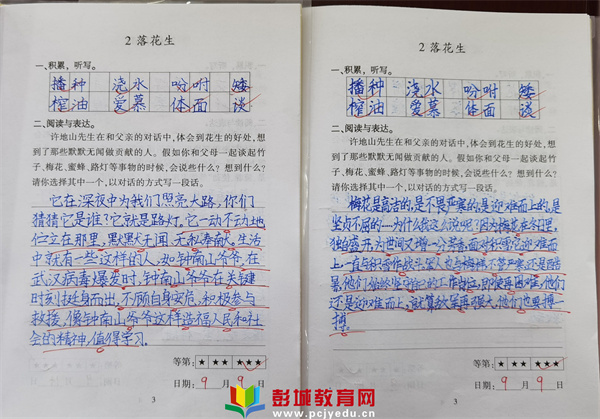 2 落花生
一、积累,听写。
播种 浇水 吩咐 矮
榨油 爱慕 体面 谈
二、阅读与表达。
许地山先生在和父亲的对话中,体会到花生的好处,想
到了那些默默无闻做贡献的人。假如你和父母一起谈起竹
子、梅花、蜜蜂、路灯等事物的时候,会说些什么?想到什么?
请你选择其中一个,以对话的方式写一段话。
它在深夜中为我们照亮大路,你们
猜猜它是谁?它就是路灯。它一动不动地
伫立在那里,默默无闻、无私奉献。生活
中就有一些这样的人,如钟南山爷爷,在
武汉病毒爆发时,钟南山爷爷在关键
时刻挺身而出,不顾自身安危,积极参与
救援,像钟南山爷爷这样造福人民和社
会的精神,值得学习.
等第: ★ ★★ ★★★
日期: 9 月 9 日
3
2 落花生
一、积累,听写。
播种 浇水 吩咐 矮
榨油 爱慕 体面 谈
二、阅读与表达。
许地山先生在和父亲的对话中,体会到花生的好处,想
到了那些默默无闻做贡献的人。假如你和父母一起谈起竹
子、梅花、蜜蜂、路灯等事物的时候,会说些什么?想到什么?
请你选择其中一个,以对话的方式写一段话。
梅花是高洁的,是不畏严寒的,是迎难而上的,是
坚贞不屈的……为什么我这么说呢?因为梅花在冬日里,
独自盛开,为世间又增一分
上,一直与
他们
还是迎难而上,就算敌军再强大,他们也要搏一
搏.
等第: ★ ★★ ★★★
日期: 9 月 9 日
3
彭城教育网
www.pcjyedu.cn